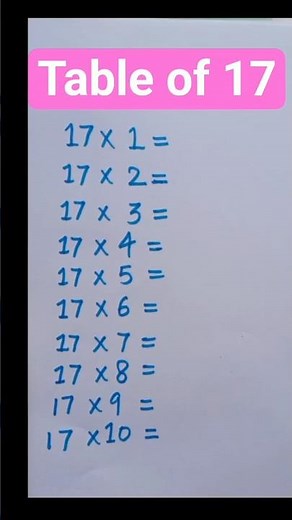 Table of 17
17 x 1 =
17 x 2 =
17 x 3 =
17 x 4 =
17 x 5 =
17 x 6 =
17 x 7 =
17 x 8 =
17 x 9 =
17 x 10 =